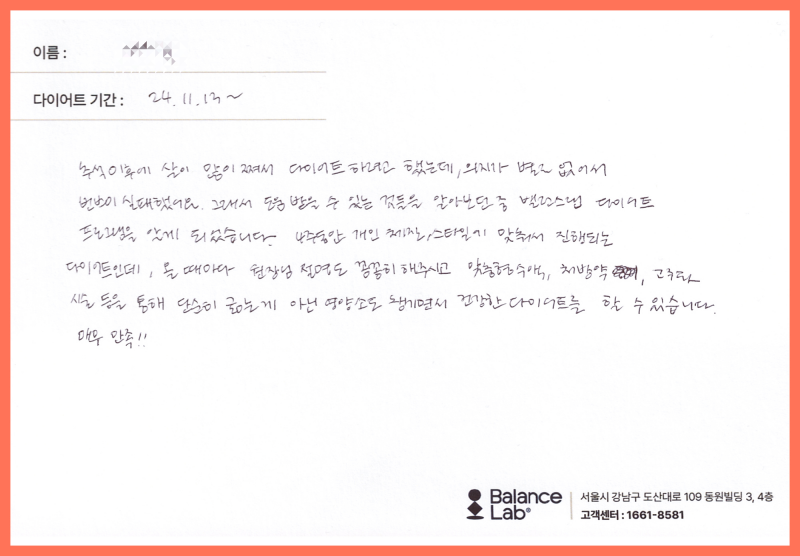 이름 :
다이어트 기간 : 24.11.13~
추석이후에 살이 많이 쪄서 다이어트하려고 했는데, 의지가 별로 없어서
번번이 실패했어요. 그래서 도움 받을 수 있는 것들을 알아보던 중 밸런스랩 다이어트
프로그램을 알게 되었습니다. 4주동안 개인 체질, 스타일기 맞춰서 진행되는
다이어트인데, 올 때마다 원장님 설명도 꼼꼼히 해주시고 맞춤형수액, 처방약, 고주파
시술 등을 통해 단순히 굶는게 아닌 영양소도 챙기면서 건강한 다이어트를 할 수 있습니다.
매우 만족!!
Balance Lab®
서울시 강남구 도산대로 109 동원빌딩 3, 4층
고객센터 : 1661-8581